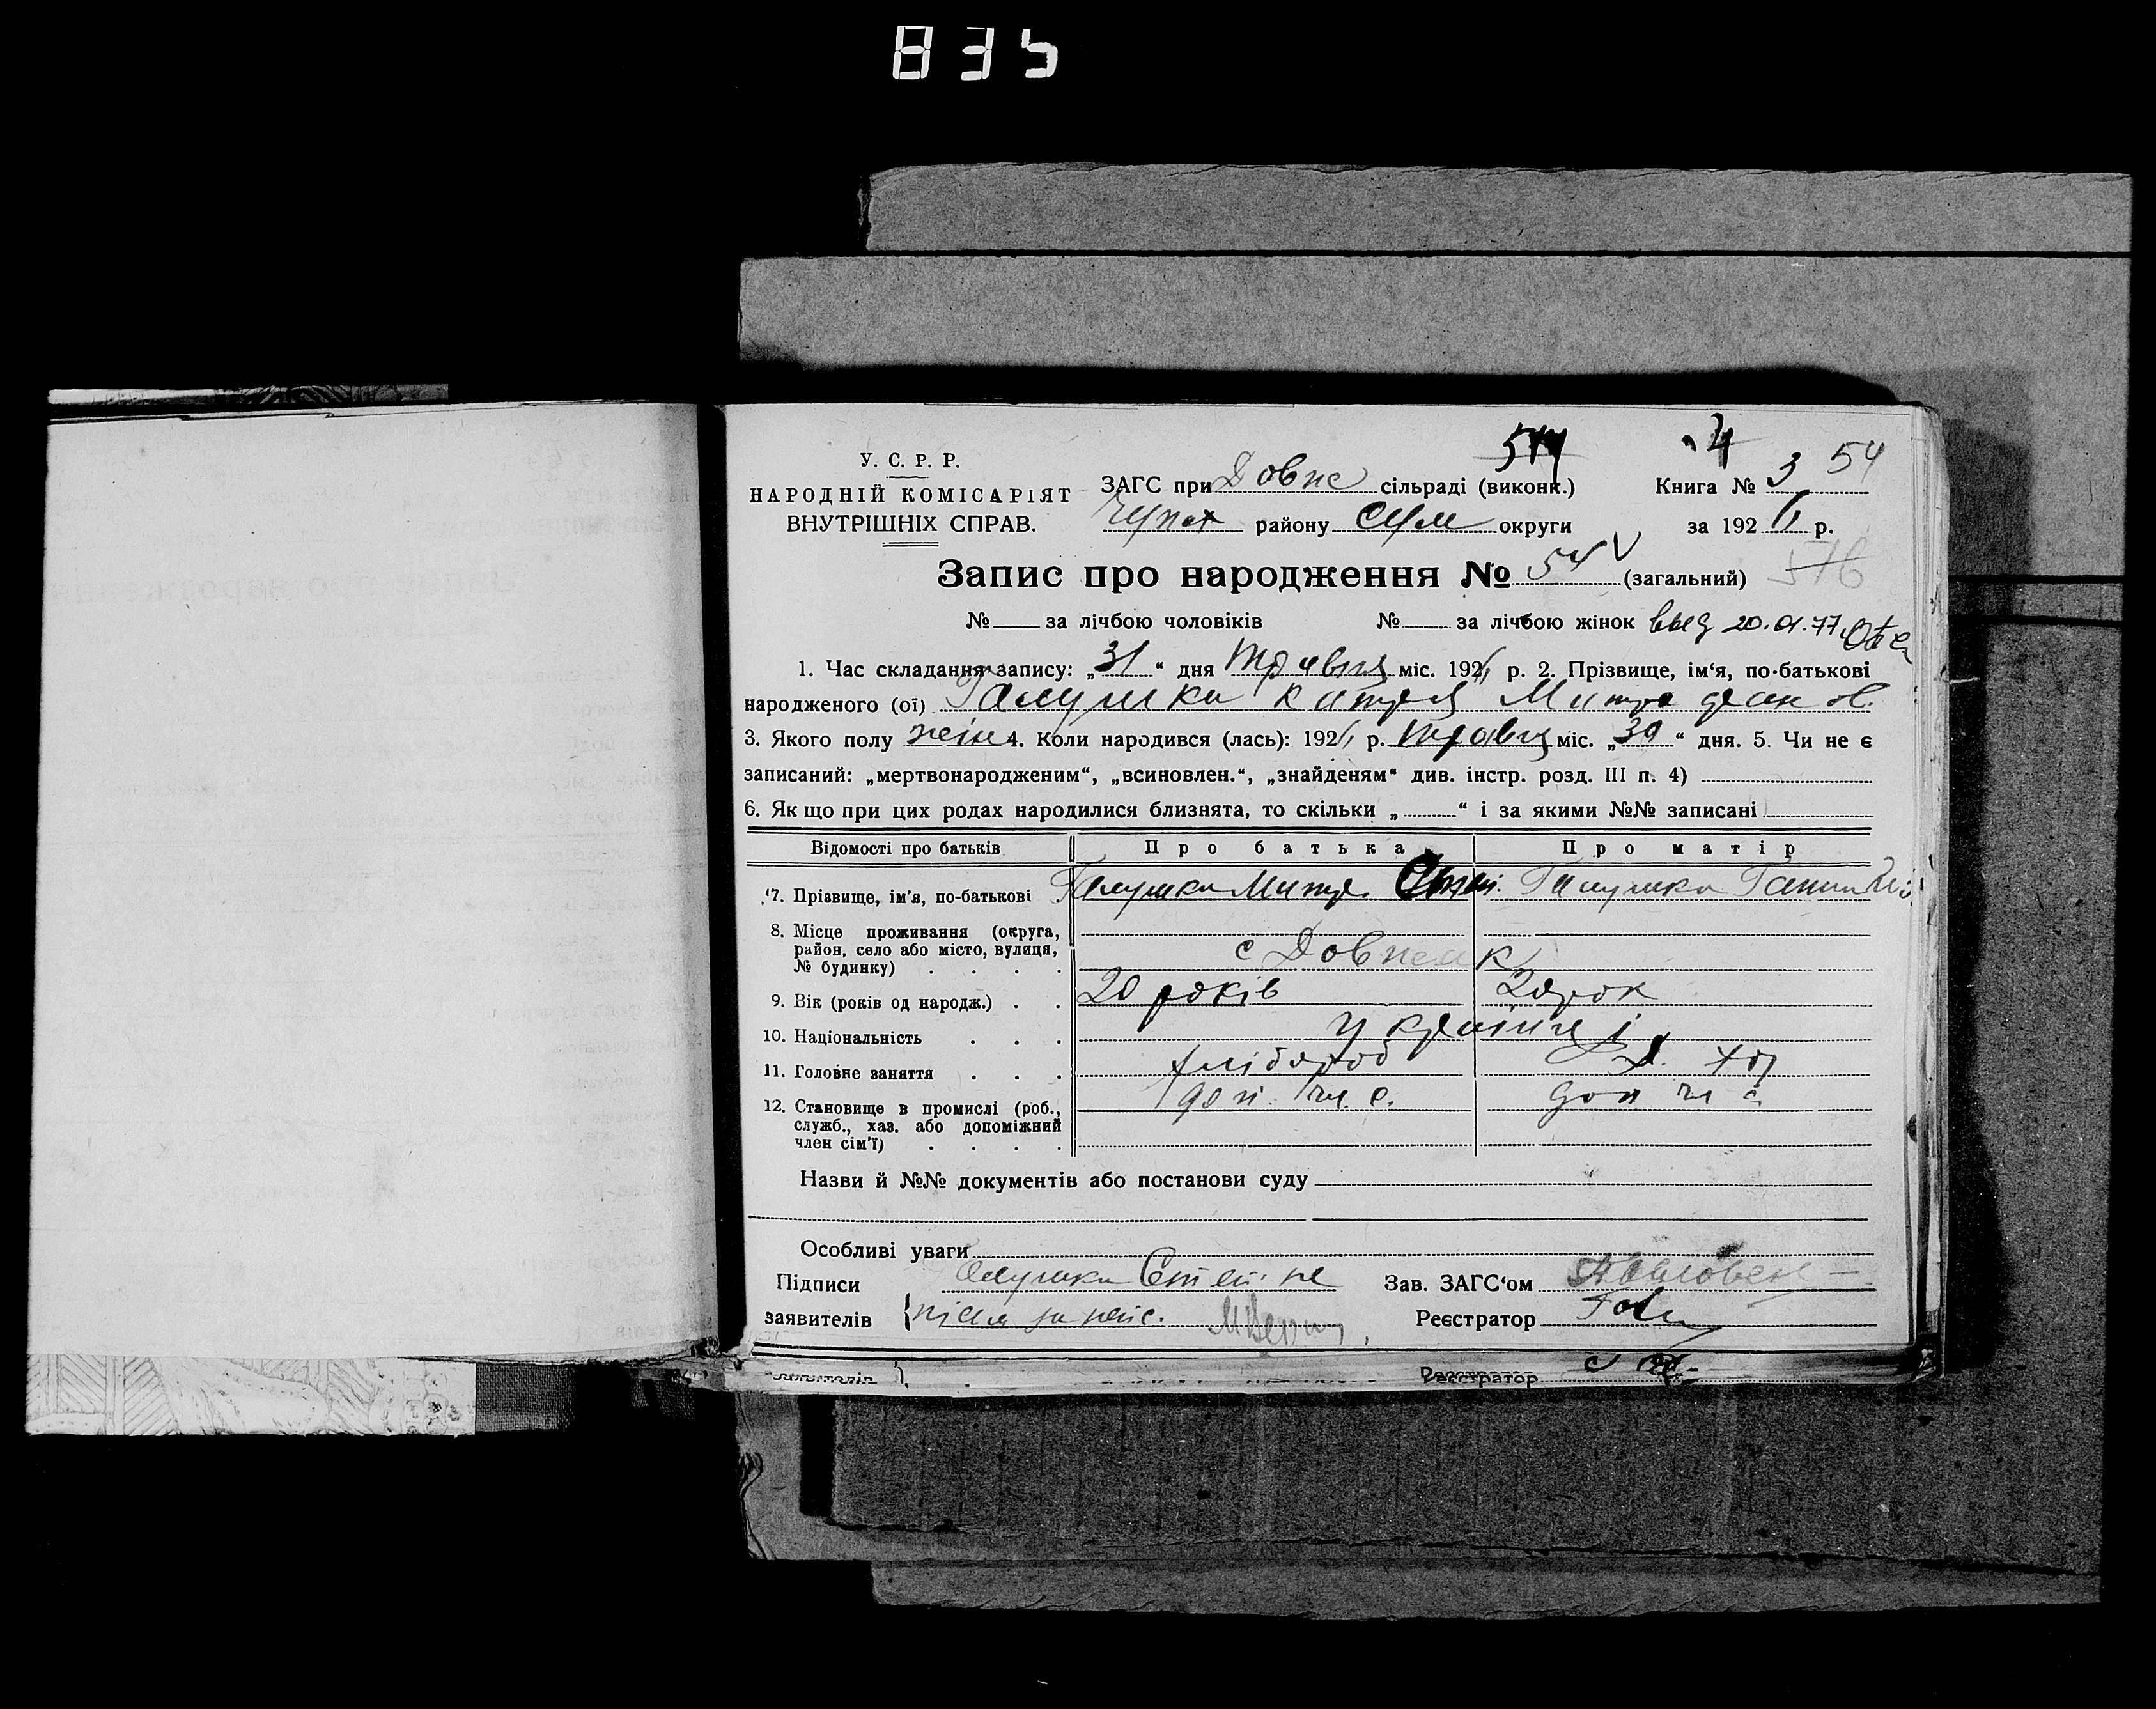 835
У. С. Р. Р.
НАРОДНІЙ КОМІСАРІЯТ
ВНУТРІШНІХ СПРАВ.
ЗАГС при Довж сільраді (виконк.)
514
4
Книга № 3 54
району Сум округи
за 192 р.
Запис про народження № 54 (загальний) 516
№ за лічбою чоловіків № за лічбою жінок выд 20.01.77
1. Час складання запису: „31“ дня Травня міс. 192 р. 2. Прізвище, ім‘я, по-батькові
народженого (ої) Галушка Катря Митро
3. Якого полу жін 4. Коли народився (лась): 192 р. травня міс. „30“ дня. 5. Чи не є
записаний: „мертвонародженим“, „всиновлен.“, „знайденям“ див. інстр. розд. III п. 4)
6. Як що при цих родах народилися близнята, то скільки „ “ і за якими №№ записані
Відомості про батьків
Про батька
Про матір
7. Прізвище, ім‘я, по-батькові Галушка Митр. Галушка Ганна
8. Місце проживання (округа, район, село або місто, вулиця, № будинку) с Довжик
9. Вік (років од народж.) 20 років 20 рок
10. Національність україн
11. Головне заняття хлібороб
12. Становище в промислі (роб., служб., хаз. або допоміжний член сім‘ї) доп. чл. с. доп чл с
Назви й №№ документів або постанови суду
Особливі уваги
Підписи Галушка
Зав. ЗАГС‘ом
заявителів
Реєстратор
Реєстратор